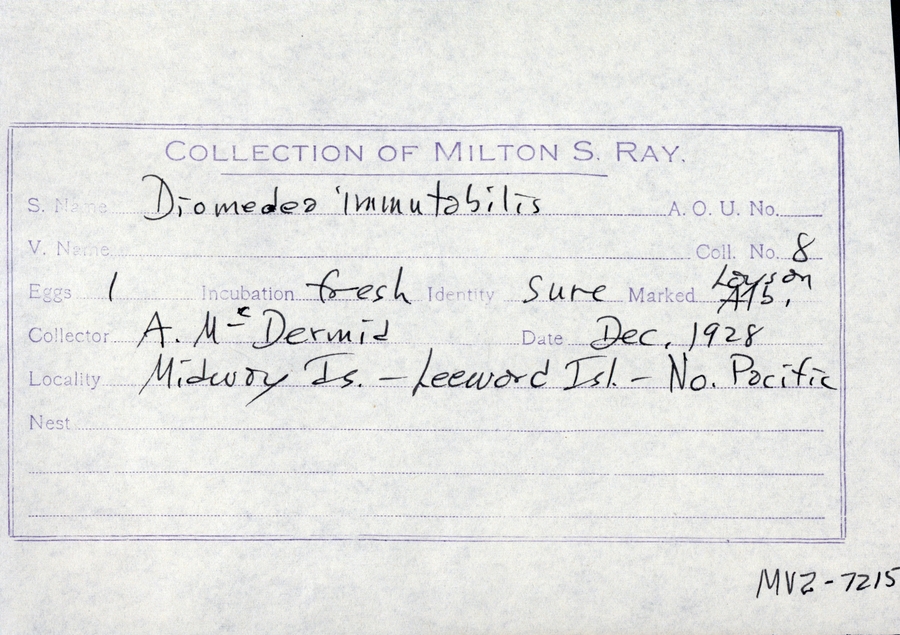 COLLECTION OF MILTON S. RAY.
S. Name Diomedea immutabilis A. O. U. No.
V. Name Coll. No. 8
Eggs 1 Incubation fresh Identity sure Marked Laysan Alb.
Collector A. Mc Dermid Date Dec. 1928
Locality Midway Is. - Leeward Isl. - No. Pacific
Nest
MVZ-7215